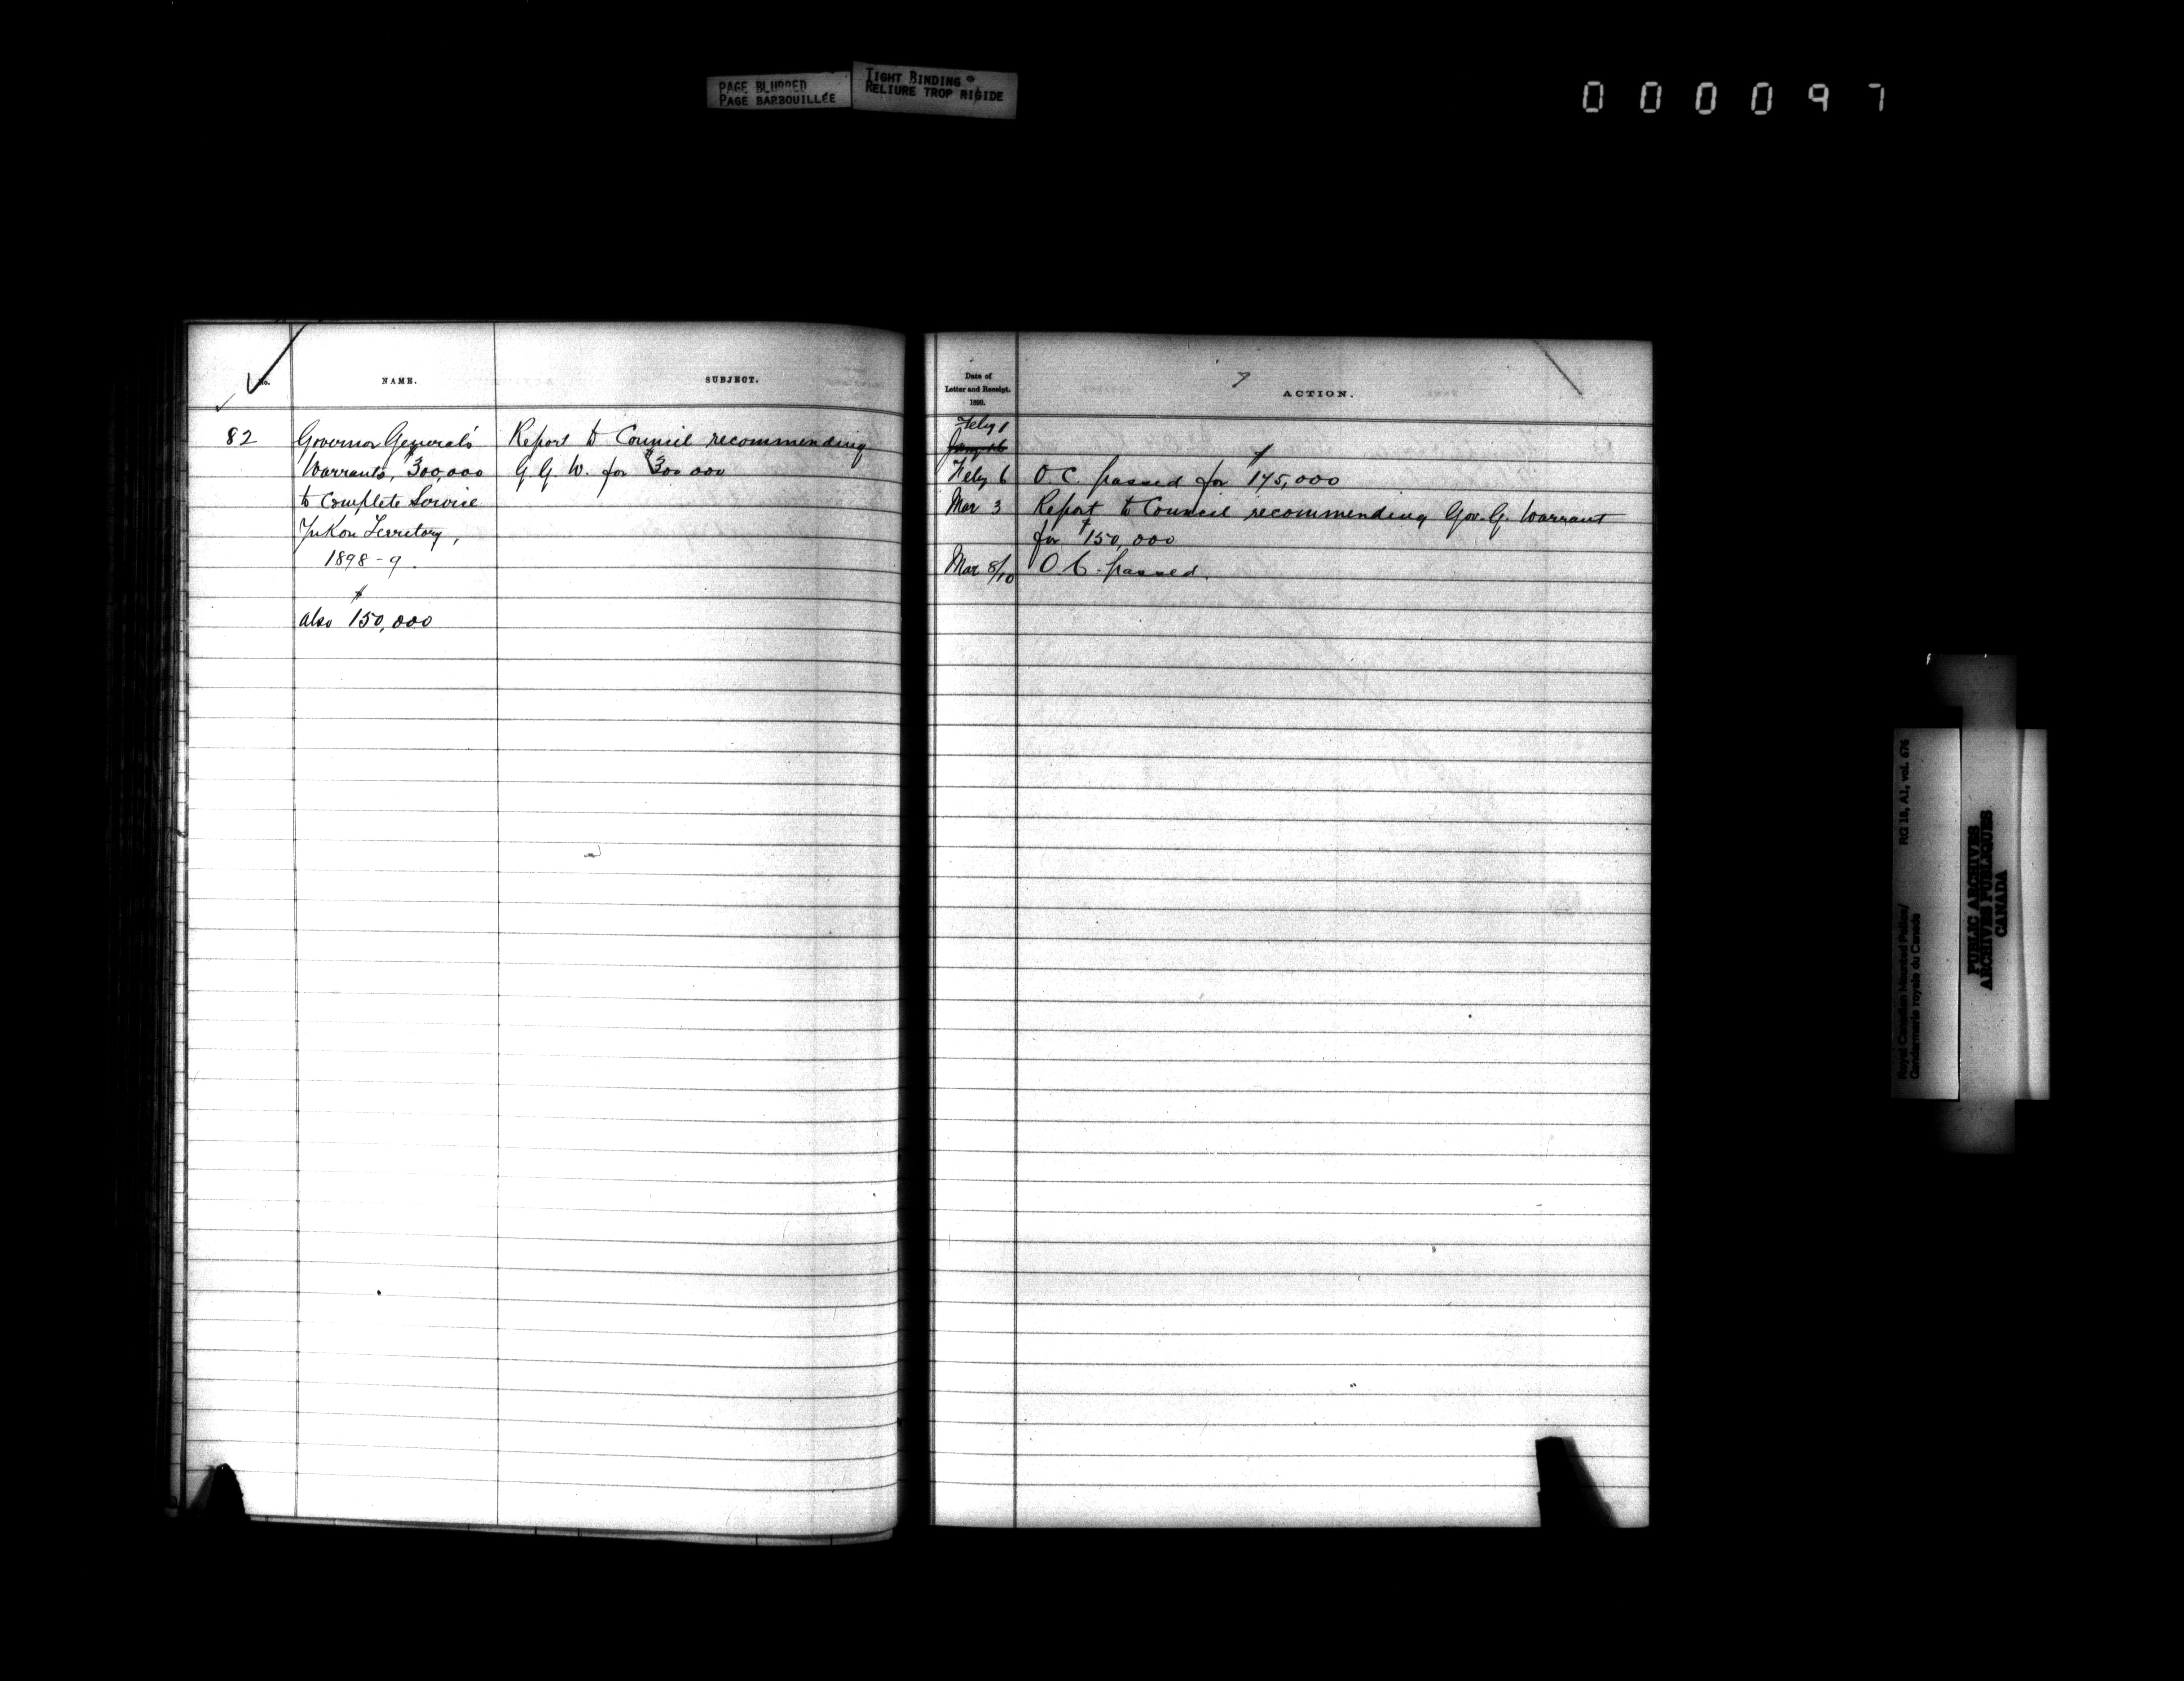 PAGE BLURRED
PAGE BARBOUILLÉE
TIGHT BINDING
RELIURE TROP RIGIDE
000097
No.
NAME.
SUBJECT.
82
Governor General's
Warrants, $300,000
to complete Service
Yukon Territory,
1898-9.
also $150,000
Report to Council recommending
G. G. W. for $300 000
Date of
Letter and Receipt.
1899.
ACTION.
Feby 1
Jany 16
Feby 6 O.C. passed for $145,000
Mar 3 Report to Council recommending Gov. G. Warrant
for $150,000
Mar 8/10 O.C. passed.
Royal Canadian Mounted Police/ RG 18, A1, vol. 676
Gendarmerie royale du Canada
PUBLIC ARCHIVES
ARCHIVES PUBLIQUES
CANADA